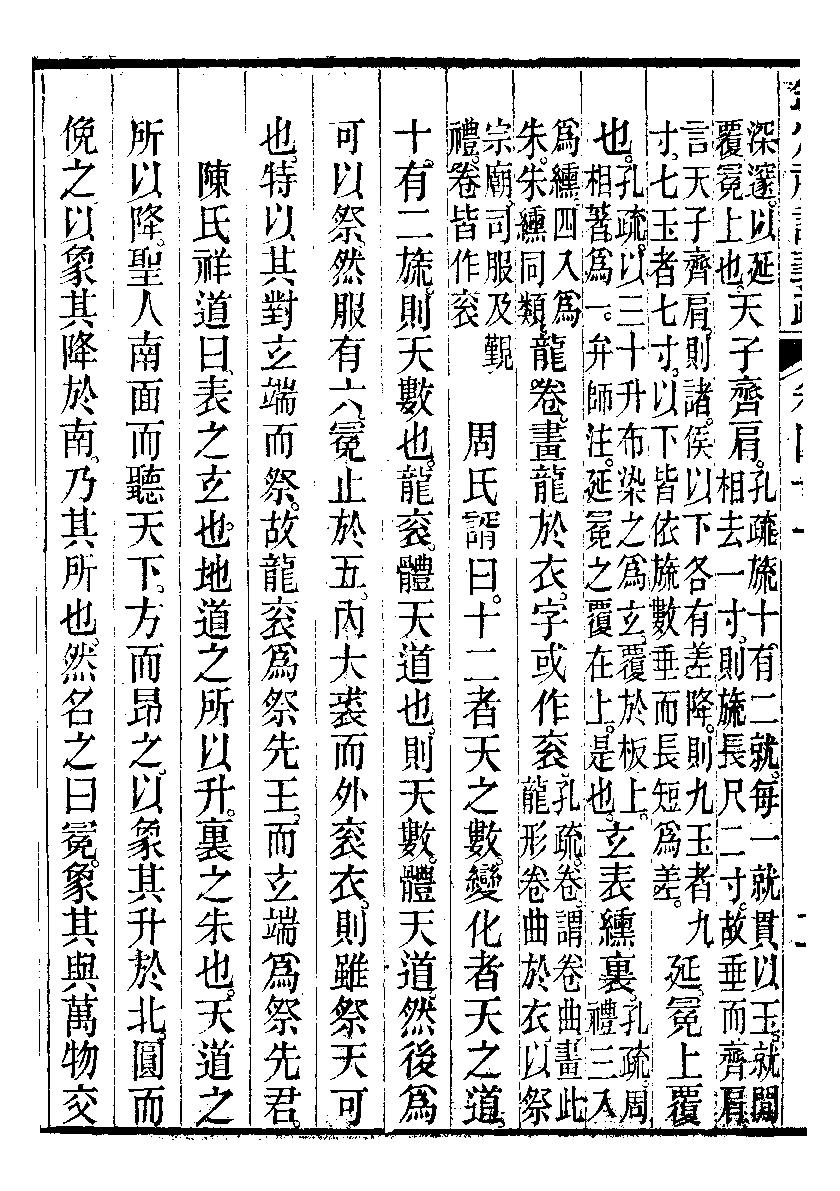 深邃。以延覆冕上也。天子齊肩。孔疏旒十有二就。每一就貫以玉。就閒相去一寸。則旒長尺二寸。故垂而齊肩
言天子齊肩。則諸侯以下各有差降。則九玉者九寸。七玉者七寸。以下皆依旒數垂而長短爲差。延。冕上覆
也。孔疏。以三十升布染之爲玄。覆於板上。相著爲一。弁師注。延冕之覆在上。是也。玄表纁裏。孔疏。周禮三入
爲纁。四入爲朱。朱纁同類。龍卷。畫龍於衣。字或作衮。孔疏。卷謂卷曲。畫此龍形卷曲於衣。以祭
宗廟。司服及覲禮。卷皆作衮　周氏諝曰。十二者天之數。變化者天之道。
十有二旒。則天數也。龍衮。體天道也。則天數。體天道。然後爲
可以祭。然服有六。冕止於五。內大裘而外衮衣。則雖祭天可
也。特以其對玄端而祭。故龍衮爲祭先王。而玄端爲祭先君。
陳氏祥道曰。表之玄也。地道之所以升。裏之朱也。天道之
所以降。聖人南面而聽天下。方而昂之。以象其升於北。圓而
俛之。以象其降於南。乃其所也。然名之曰冕。象其與萬物交